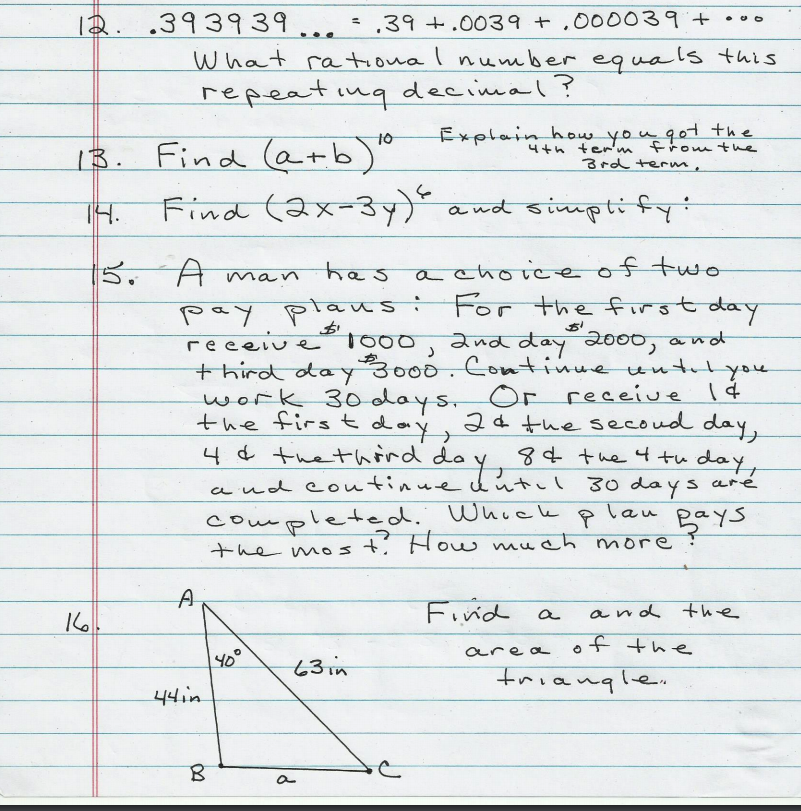 12. .393939... = .39 + .0039 + .000039 + ...
What rational number equals this
repeating decimal?
13. Find (a+b)^10 Explain how you got the
4th term from the
3rd term.
14. Find (2x-3y)^6 and simplify:
15. A man has a choice of two
pay plans: For the first day
receive $1000, 2nd day $2000, and
third day $3000. Continue until you
work 30 days. Or receive 1¢
the first day, 2¢ the second day,
4¢ the third day, 8¢ the 4th day,
and continue until 30 days are
completed. Which plan pays
the most? How much more?
16. A Find a and the
area of the
triangle.
40°
63in
44in
B a C